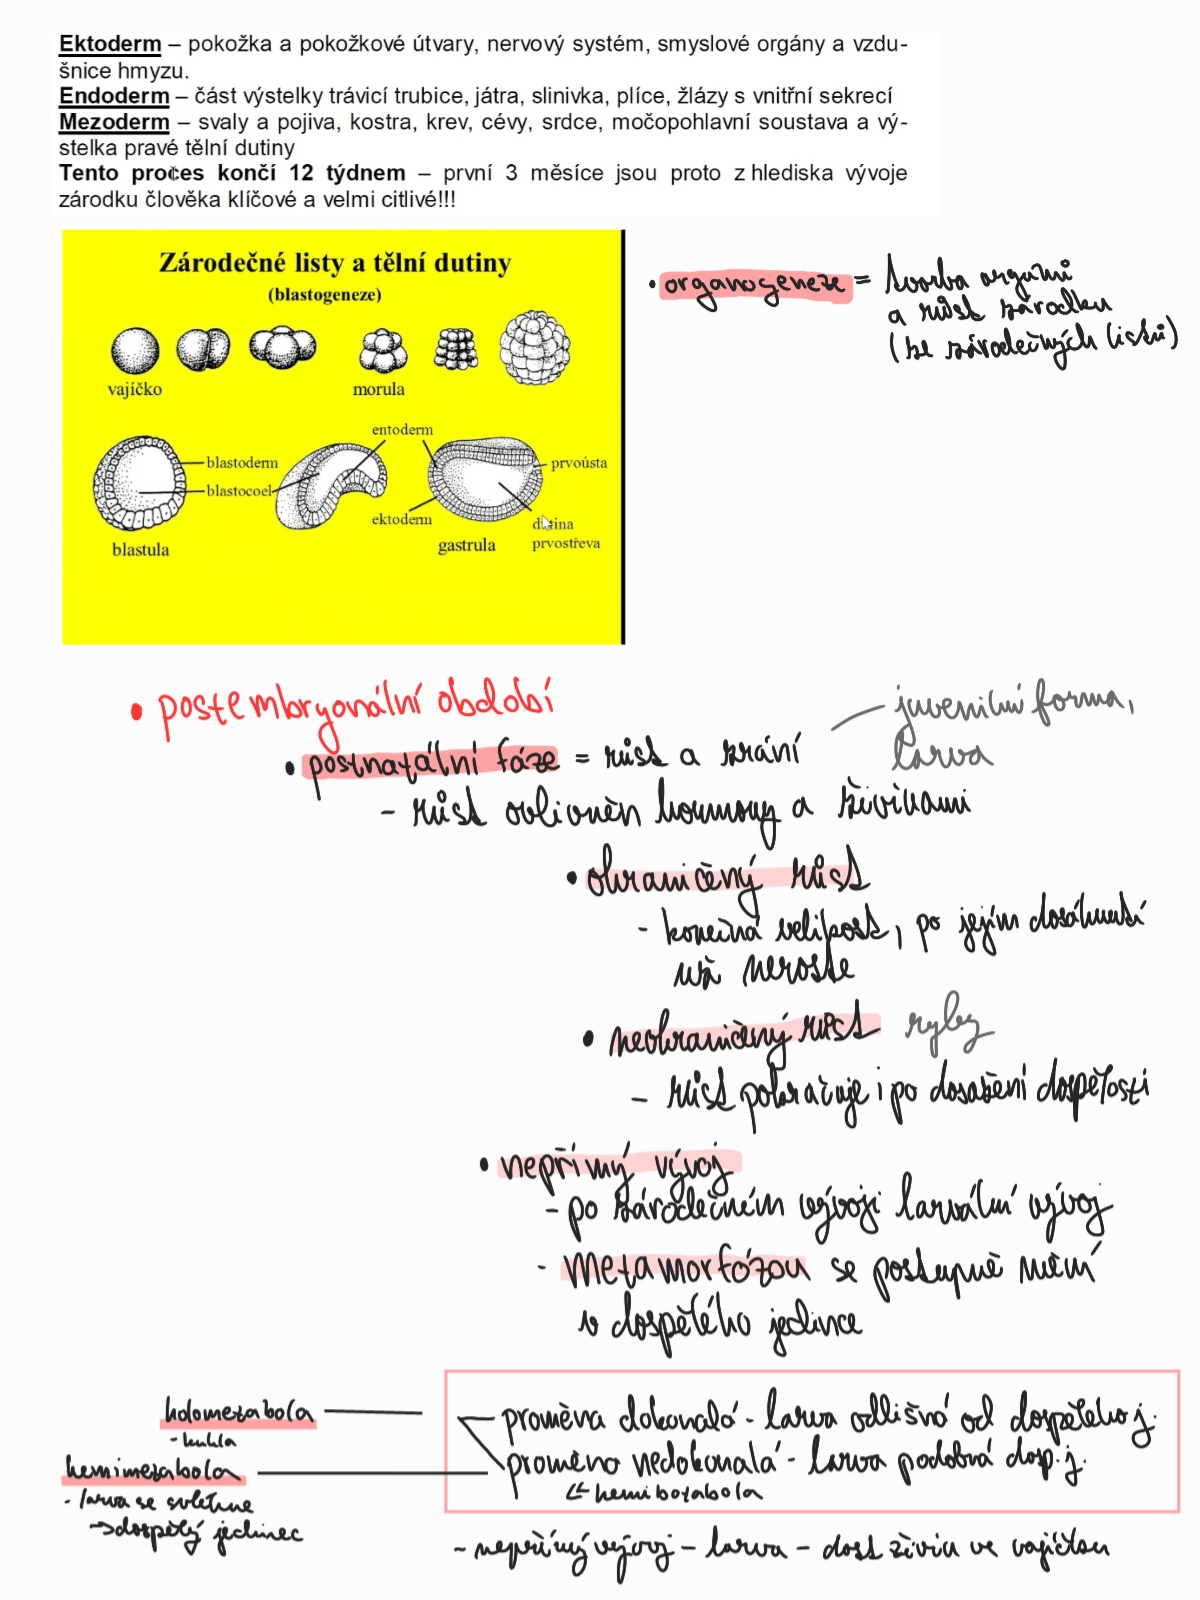 Ektoderm – pokožka a pokožkové útvary, nervový systém, smyslové orgány a vzdu-
šnice hmyzu.
Endoderm – část výstelky trávicí trubice, játra, slinivka, plíce, žlázy s vnitřní sekrecí
Mezoderm – svaly a pojiva, kostra, krev, cévy, srdce, močopohlavní soustava a vý-
stelka pravé tělní dutiny
Tento proces končí 12 týdnem – první 3 měsíce jsou proto z hlediska vývoje
zárodku člověka klíčové a velmi citlivé!!!
Zárodečné listy a tělní dutiny
(blastogeneze)
vajíčko
morula
entoderm
blastoderm
prvoústa
blastocoel
ektoderm
dutina
prvostřeva
blastula
gastrula
• organogeneze = tvorba orgánů
a růst zárodku
(ze zárodečných listů)
• postembryonální období
juvenilní forma,
larva
• postnatální fáze = růst a zrání
- růst ovlivněn hormony a živinami
• ohraničený růst
- konečná velikost, po jejím dosáhnutí
už neroste
• neohraničený růst ryby
- růst pokračuje i po dosažení dospělosti
• nepřímý vývoj
- po zárodečném vývoji larvální vývoj
- metamorfózou se postupně mění
v dospělého jedince
holometabola
- kukla
hemimetabola
- larva se svlékne
→ dospělý jedinec
proměna dokonalá - larva odlišná od dospělého j.
proměna nedokonalá - larva podobná dosp. j.
⇐ hemibotabola
- nepřímý vývoj - larva - dost živin ve vajíčku